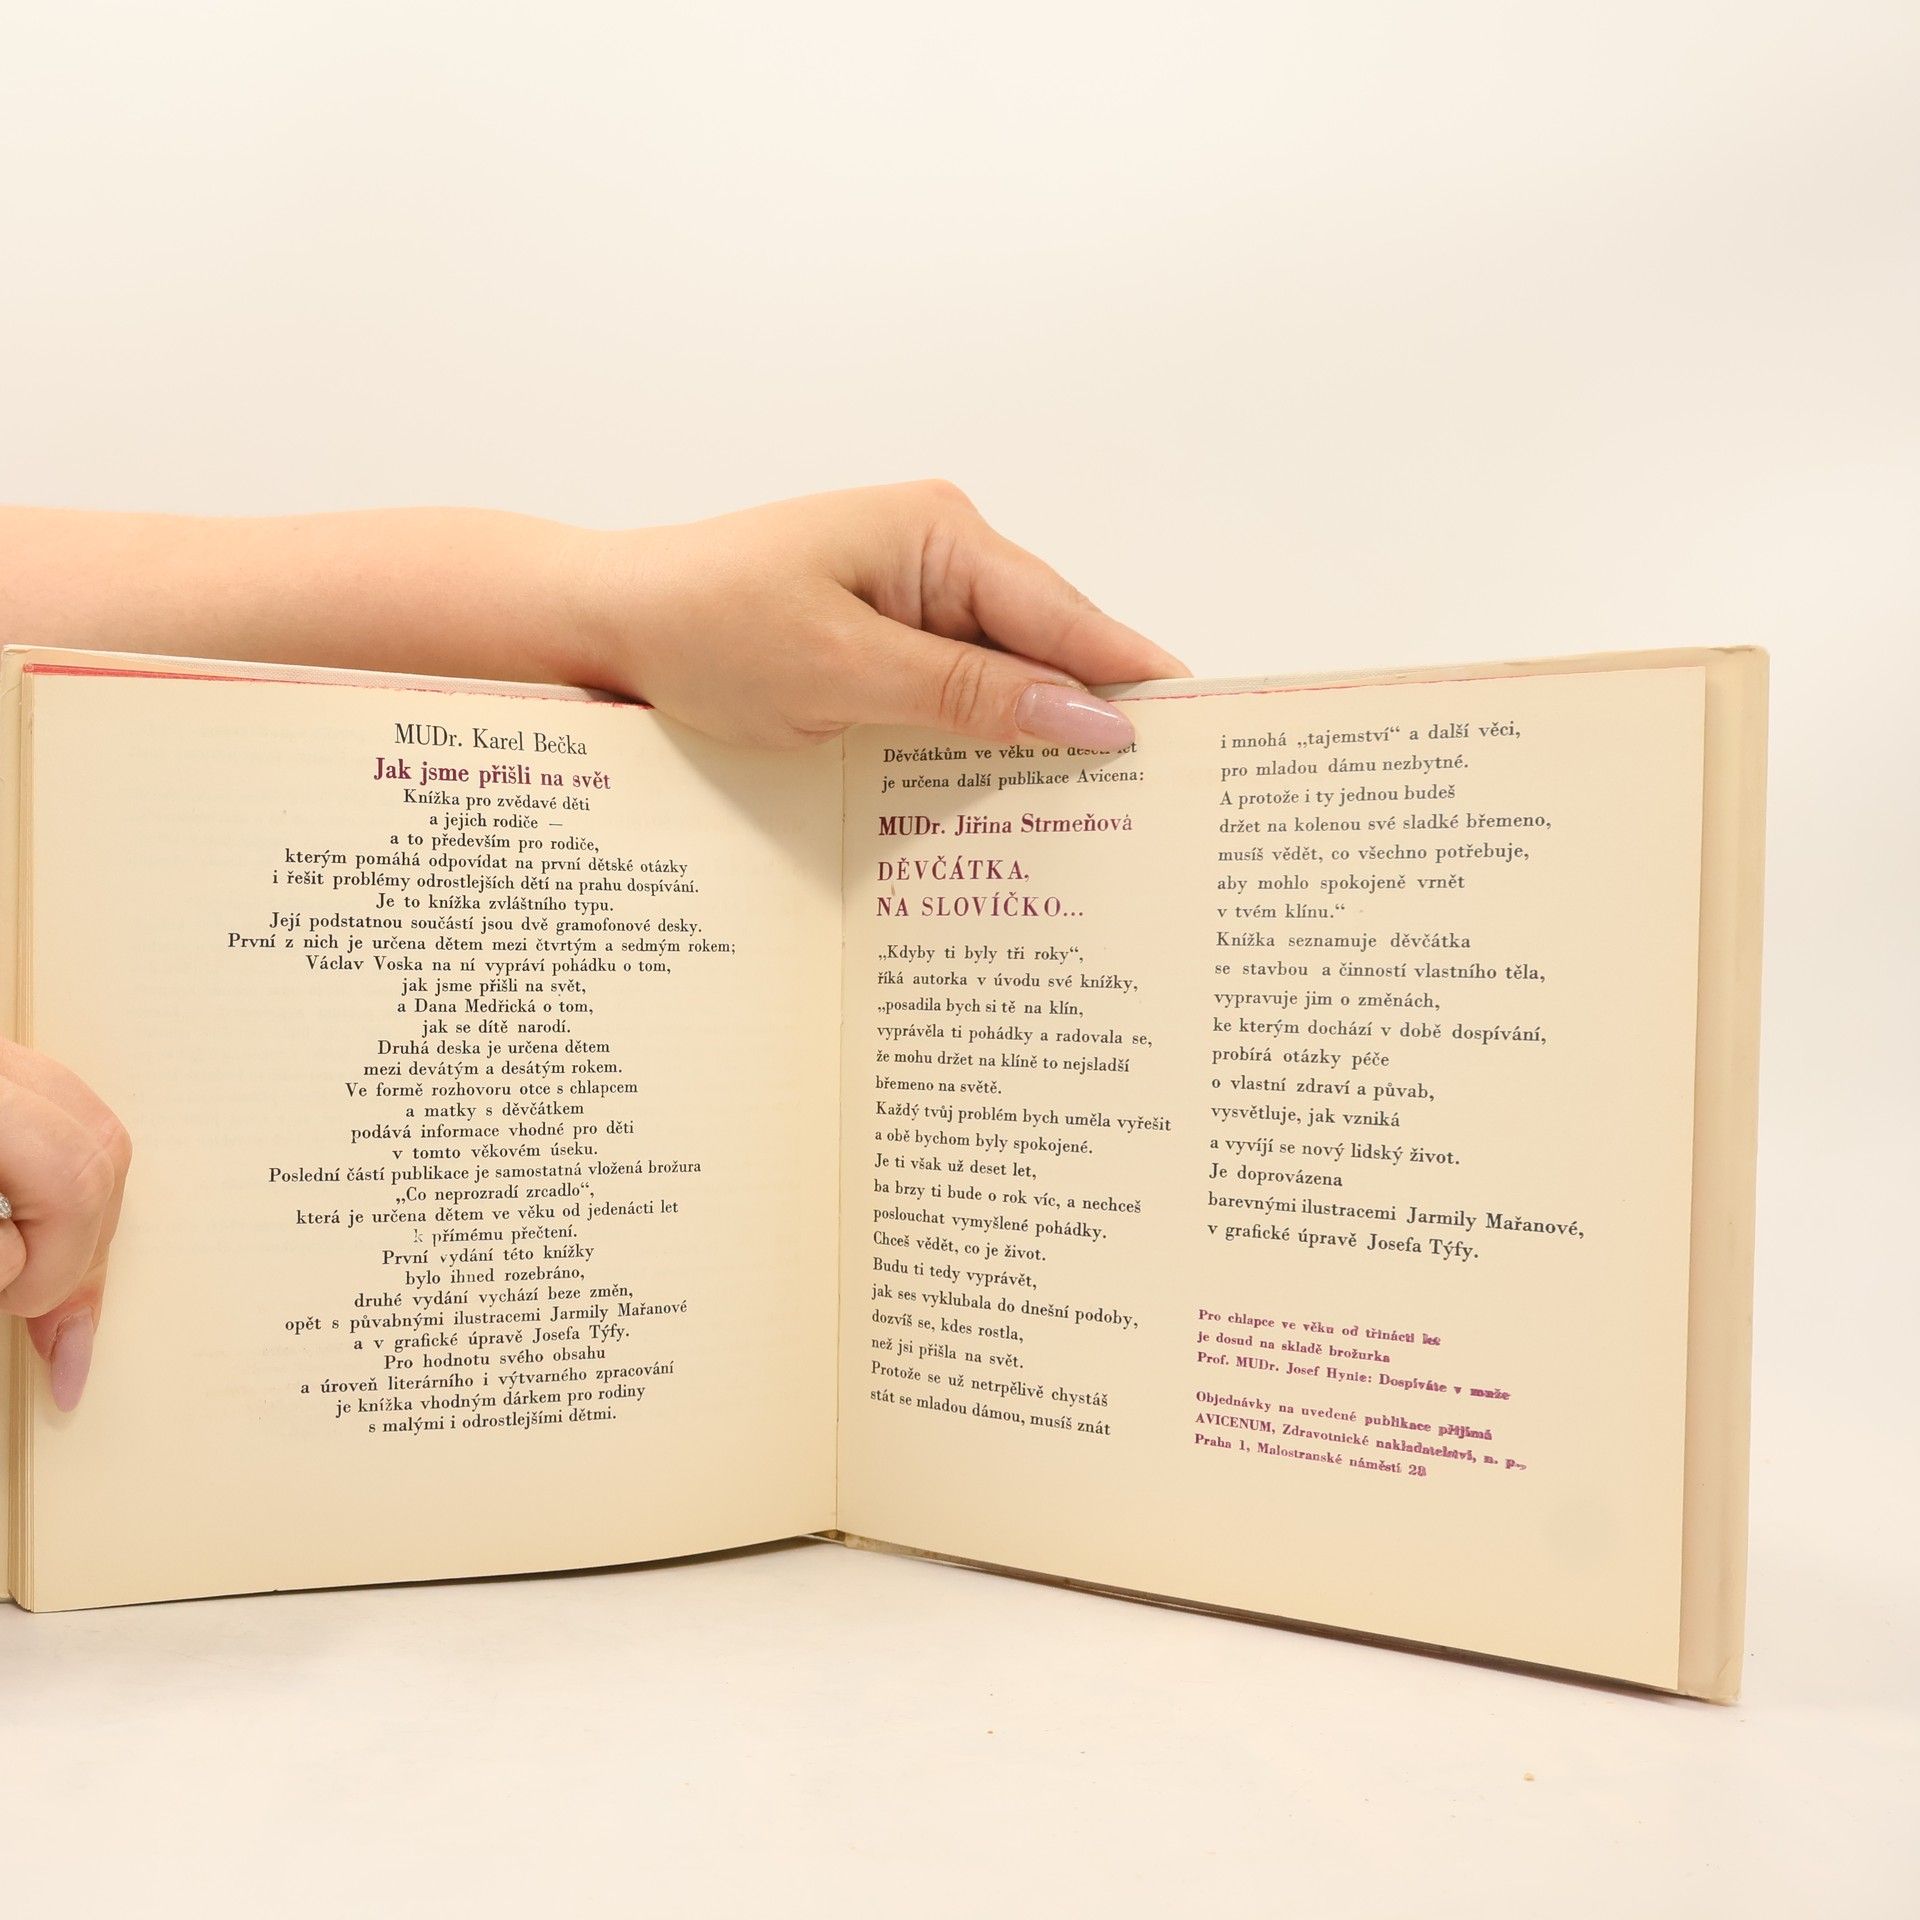 MUDr. Karel Bečka
Jak jsme přišli na svět
Knížka pro zvědavé děti
a jejich rodiče —
a to především pro rodiče,
kterým pomáhá odpovídat na první dětské otázky
i řešit problémy odrostlejších dětí na prahu dospívání.
Je to knížka zvláštního typu.
Její podstatnou součástí jsou dvě gramofonové desky.
První z nich je určena dětem mezi čtvrtým a sedmým rokem;
Václav Voska na ní vypráví pohádku o tom,
jak jsme přišli na svět,
a Dana Medřická o tom,
jak se dítě narodí.
Druhá deska je určena dětem
mezi devátým a desátým rokem.
Ve formě rozhovoru otce s chlapcem
a matky s děvčátkem
podává informace vhodné pro děti
v tomto věkovém úseku.
Poslední částí publikace je samostatná vložená brožura
„Co neprozradí zrcadlo“,
která je určena dětem ve věku od jedenácti let
k přímému přečtení.
První vydání této knížky
bylo ihned rozebráno,
druhé vydání vychází beze změn,
opět s půvabnými ilustracemi Jarmily Mařanové
a v grafické úpravě Josefa Týfy.
Pro hodnotu svého obsahu
a úroveň literárního i výtvarného zpracování
je knížka vhodným dárkem pro rodiny
s malými i odrostlejšími dětmi.
Děvčátkům ve věku od deseti let
je určena další publikace Avicena:
MUDr. Jiřina Strmeňová
DĚVČÁTKA,
NA SLOVÍČKO...
„Kdyby ti byly tři roky“,
říká autorka v úvodu své knížky,
„posadila bych si tě na klín,
vyprávěla ti pohádky a radovala se,
že mohu držet na klíně to nejsladší
břemeno na světě.
Každý tvůj problém bych uměla vyřešit
a obě bychom byly spokojené.
Je ti však už deset let,
ba brzy ti bude o rok víc, a nechceš
poslouchat vymyšlené pohádky.
Chceš vědět, co je život.
Budu ti tedy vyprávět,
jak ses vyklubala do dnešní podoby,
dozvíš se, kdes rostla,
než jsi přišla na svět.
Protože se už netrpělivě chystáš
stát se mladou dámou, musíš znát
i mnohá „tajemství“ a další věci,
pro mladou dámu nezbytné.
A protože i ty jednou budeš
držet na kolenou své sladké břemeno,
musíš vědět, co všechno potřebuje,
aby mohlo spokojeně vrnět
v tvém klínu.“
Knížka seznamuje děvčátka
se stavbou a činností vlastního těla,
vypravuje jim o změnách,
ke kterým dochází v době dospívání,
probírá otázky péče
o vlastní zdraví a půvab,
vysvětluje, jak vzniká
a vyvíjí se nový lidský život.
Je doprovázena
barevnými ilustracemi Jarmily Mařanové,
v grafické úpravě Josefa Týfy.
Pro chlapce ve věku od třinácti let
je dosud na skladě brožurka
Prof. MUDr. Josef Hynie: Dospíváte v muže
Objednávky na uvedené publikace přijímá
AVICENUM, Zdravotnické nakladatelství, n. p.,
Praha 1, Malostranské náměstí 28